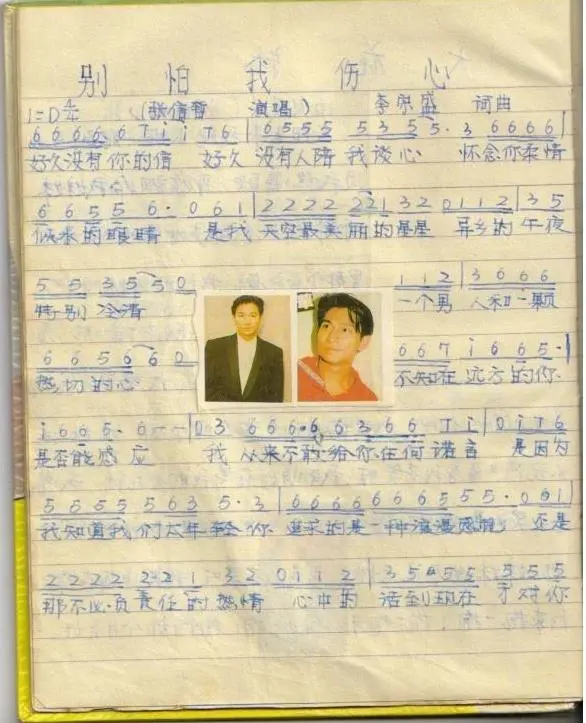 别怕我伤心
1=D 4/4 (张信哲 演唱) 李宗盛 词曲
6 6 6 6 6 7 i i 7 6 | 6 5 5 5 5 3 5 5 · 3 6 6 6 6 |
好久没有你的信 好久没有人陪我谈心 怀念你柔情
6 6 5 5 6 · 0 6 1 | 2 2 2 2 2 2 1 3 2 0 1 1 2 | 3 5
似水的眼睛 是我天空最美丽的星星 异乡的午夜
5 5 3 5 5 0 1 1 2 | 3 6 6 6
特别冷清 一个男人和一颗
6 6 5 6 6 0 6 6 7 i 6 6 5 · |
热切的心 不知在远方的你
i 6 6 5 · 6 - - | 0 3 6 6 6 · 6 6 3 6 6 7 i | 0 i 7 6
是否能感应 我从来不敢给你任何诺言 是因为
5 5 5 5 5 6 3 5 · 3 | 6 6 6 6 6 6 6 5 5 5 · 0 6 1 |
我知道我们太年轻 你追求的是一种浪漫感觉 还是
2 2 2 2 2 2 1 3 2 0 1 1 2 | 3 5 5 5 5 5 5
那不必负责任的热情 心中的话到现在才对你